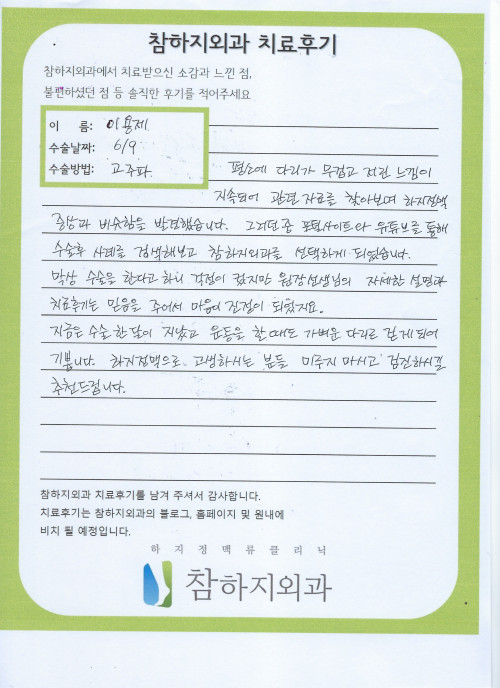 참하지외과 치료후기
참하지외과에서 치료받으신 소감과 느낀 점,
불편하셨던 점 등 솔직한 후기를 적어주세요
이 름: 이용제
수술날짜: 6/9
수술방법: 고주파
평소에 다리가 무겁고 저린 느낌이
지속되어 관련 자료를 찾아보며 하지정맥
증상과 비슷함을 발견했습니다. 그러던 중 포털사이트와 유튜브를 통해
수술후 사례를 검색해보고 참하지외과를 선택하게 되었습니다.
막상 수술을 한다고 하니 걱정이 컸지만 원장선생님의 자세한 설명과
치료후기는 믿음을 주어서 마음이 진정이 되었지요.
지금은 수술 한달이 지났고 운동을 할 때도 가벼운 다리로 걷게 되어
기쁩니다. 하지정맥으로 고생하시는 분들 미루지 마시고 검진하시길
추천드립니다.
참하지외과 치료후기를 남겨 주셔서 감사합니다.
치료후기는 참하지외과의 블로그, 홈페이지 및 원내에
비치 될 예정입니다.
하지정맥류클리닉
참하지외과